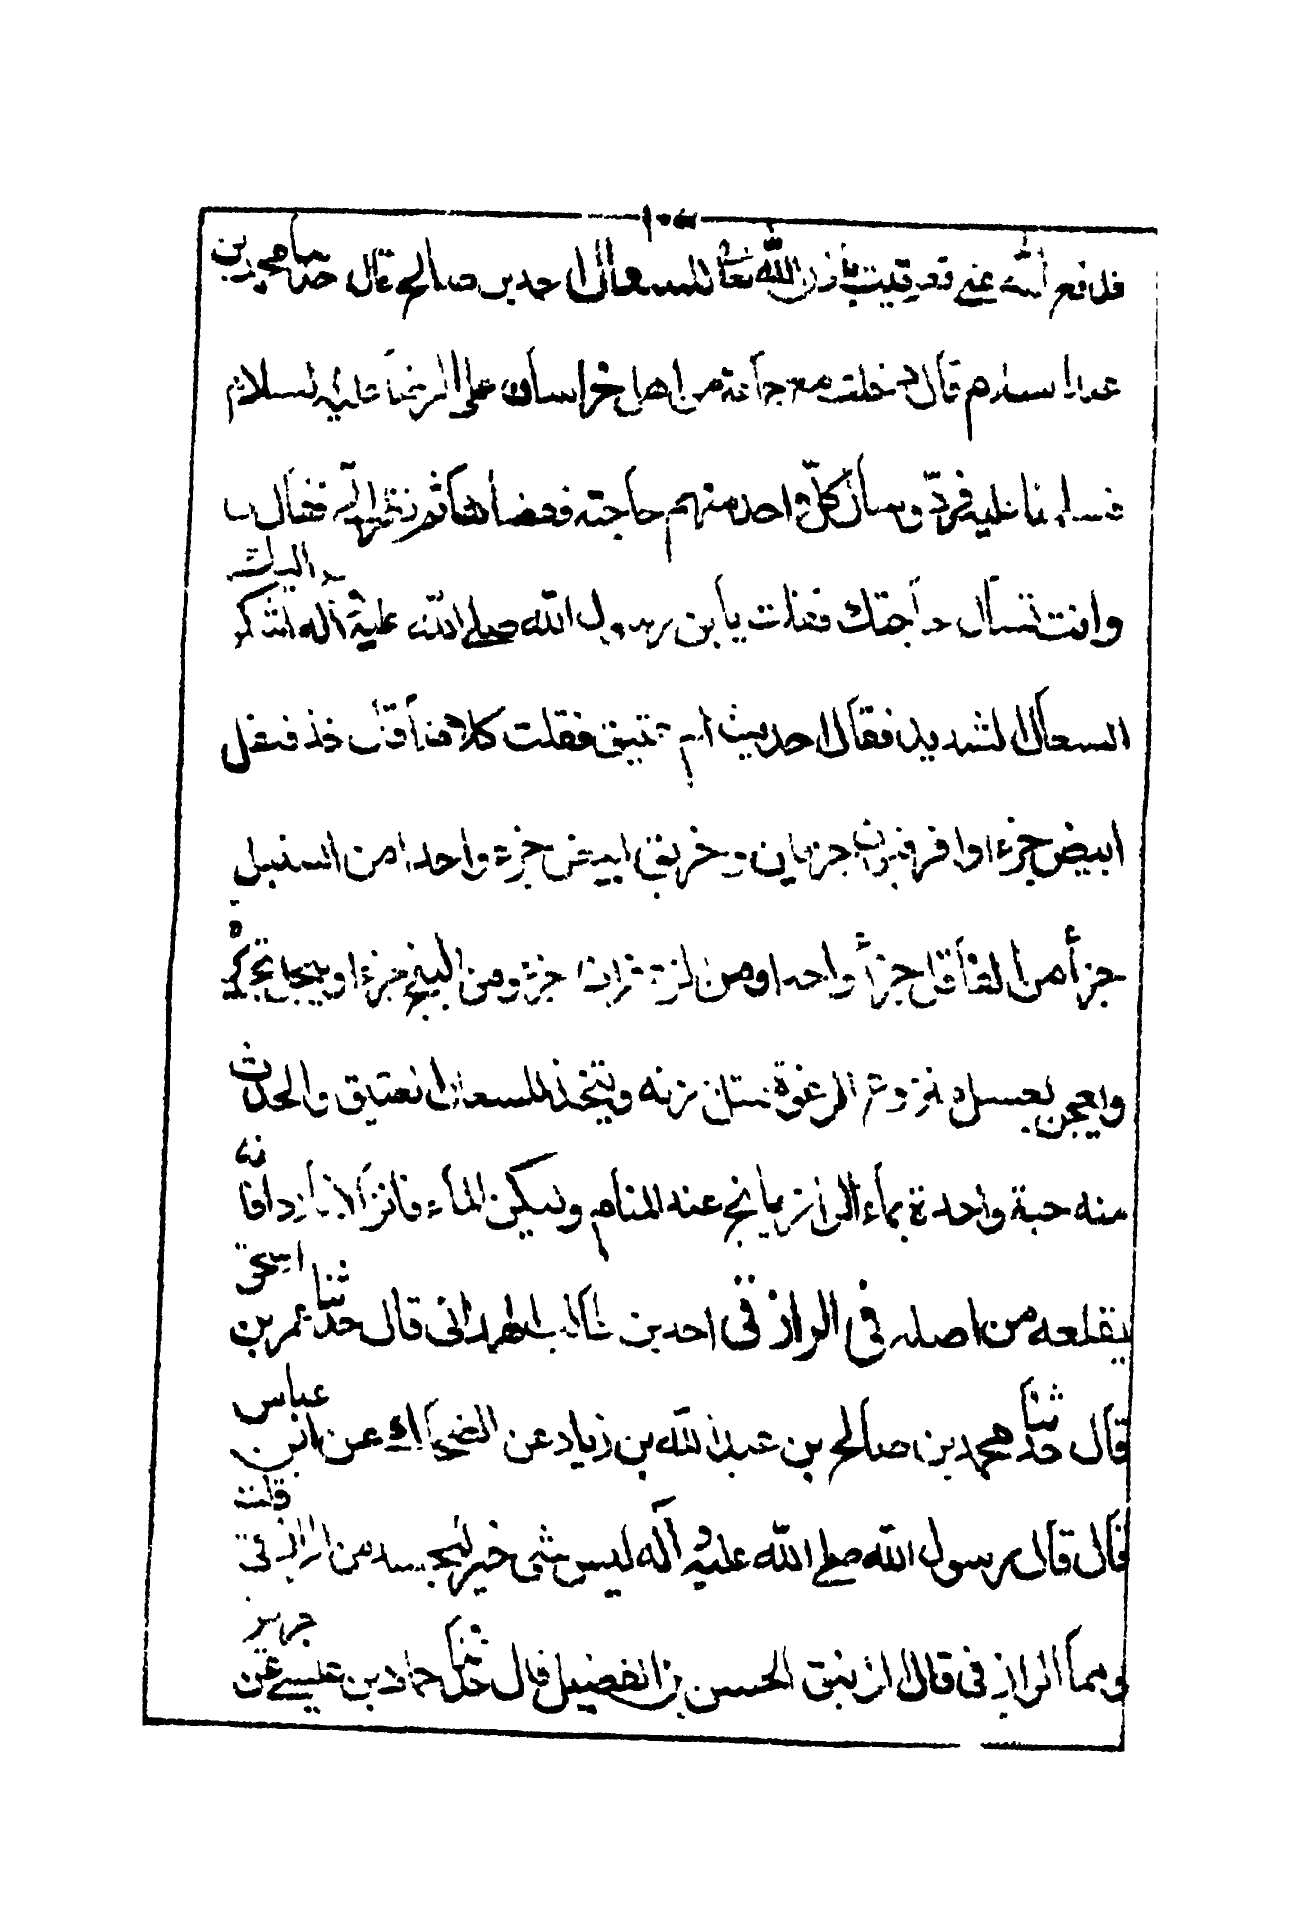 ١٠٥
فدفع الله عني فعوفيت بإذن الله تعالى للسعال احمد بن صالح قال حدثنا محمد بن
عبد السلام قال دخلت مع جماعة من اهل خراسان على الرضا عليه السلام
فسلمنا عليه فرد وسأل كل واحد منهم حاجته فقضاها ثم نظر الي فقال لي
وانت تسأل حاجتك فقلت يابن رسول الله صلى الله عليه وآله اشكو اليك
السعال الشديد فقال احديث ام عتيق فقلت كلاهما قال خذ فلفل
ابيض جزءا وافرفيون جزءاين وخربق ابيض جزء واحدا من السنبل
جزأ من القاقل جزأ واحدا ومن الزعفران جزء ومن البنج جزءا وينخل بحريرة
ويعجن بعسل منزوع الرغوة مثل وزنه ويتخذ للسعال العتيق والحدث
منه حبة واحدة بماء الرازيانج عند المنام وليكن الماء فاترا لا باردا فانه
يقلعه من اصله في الرازقي احمد بن طالب الهمداني قال حدثنا عمر بن اسحق
قال حدثنا محمد بن صالح بن عبد الله بن زياد عن الضحاك عن ابن عباس
قال قال رسول الله صلى الله عليه وآله ليس شئ خير للجسد من الرازقي قلت
وما الرازقي قال الزنبق الحسن بن الفضيل قال حدثنا حماد بن عيسى عن حريز